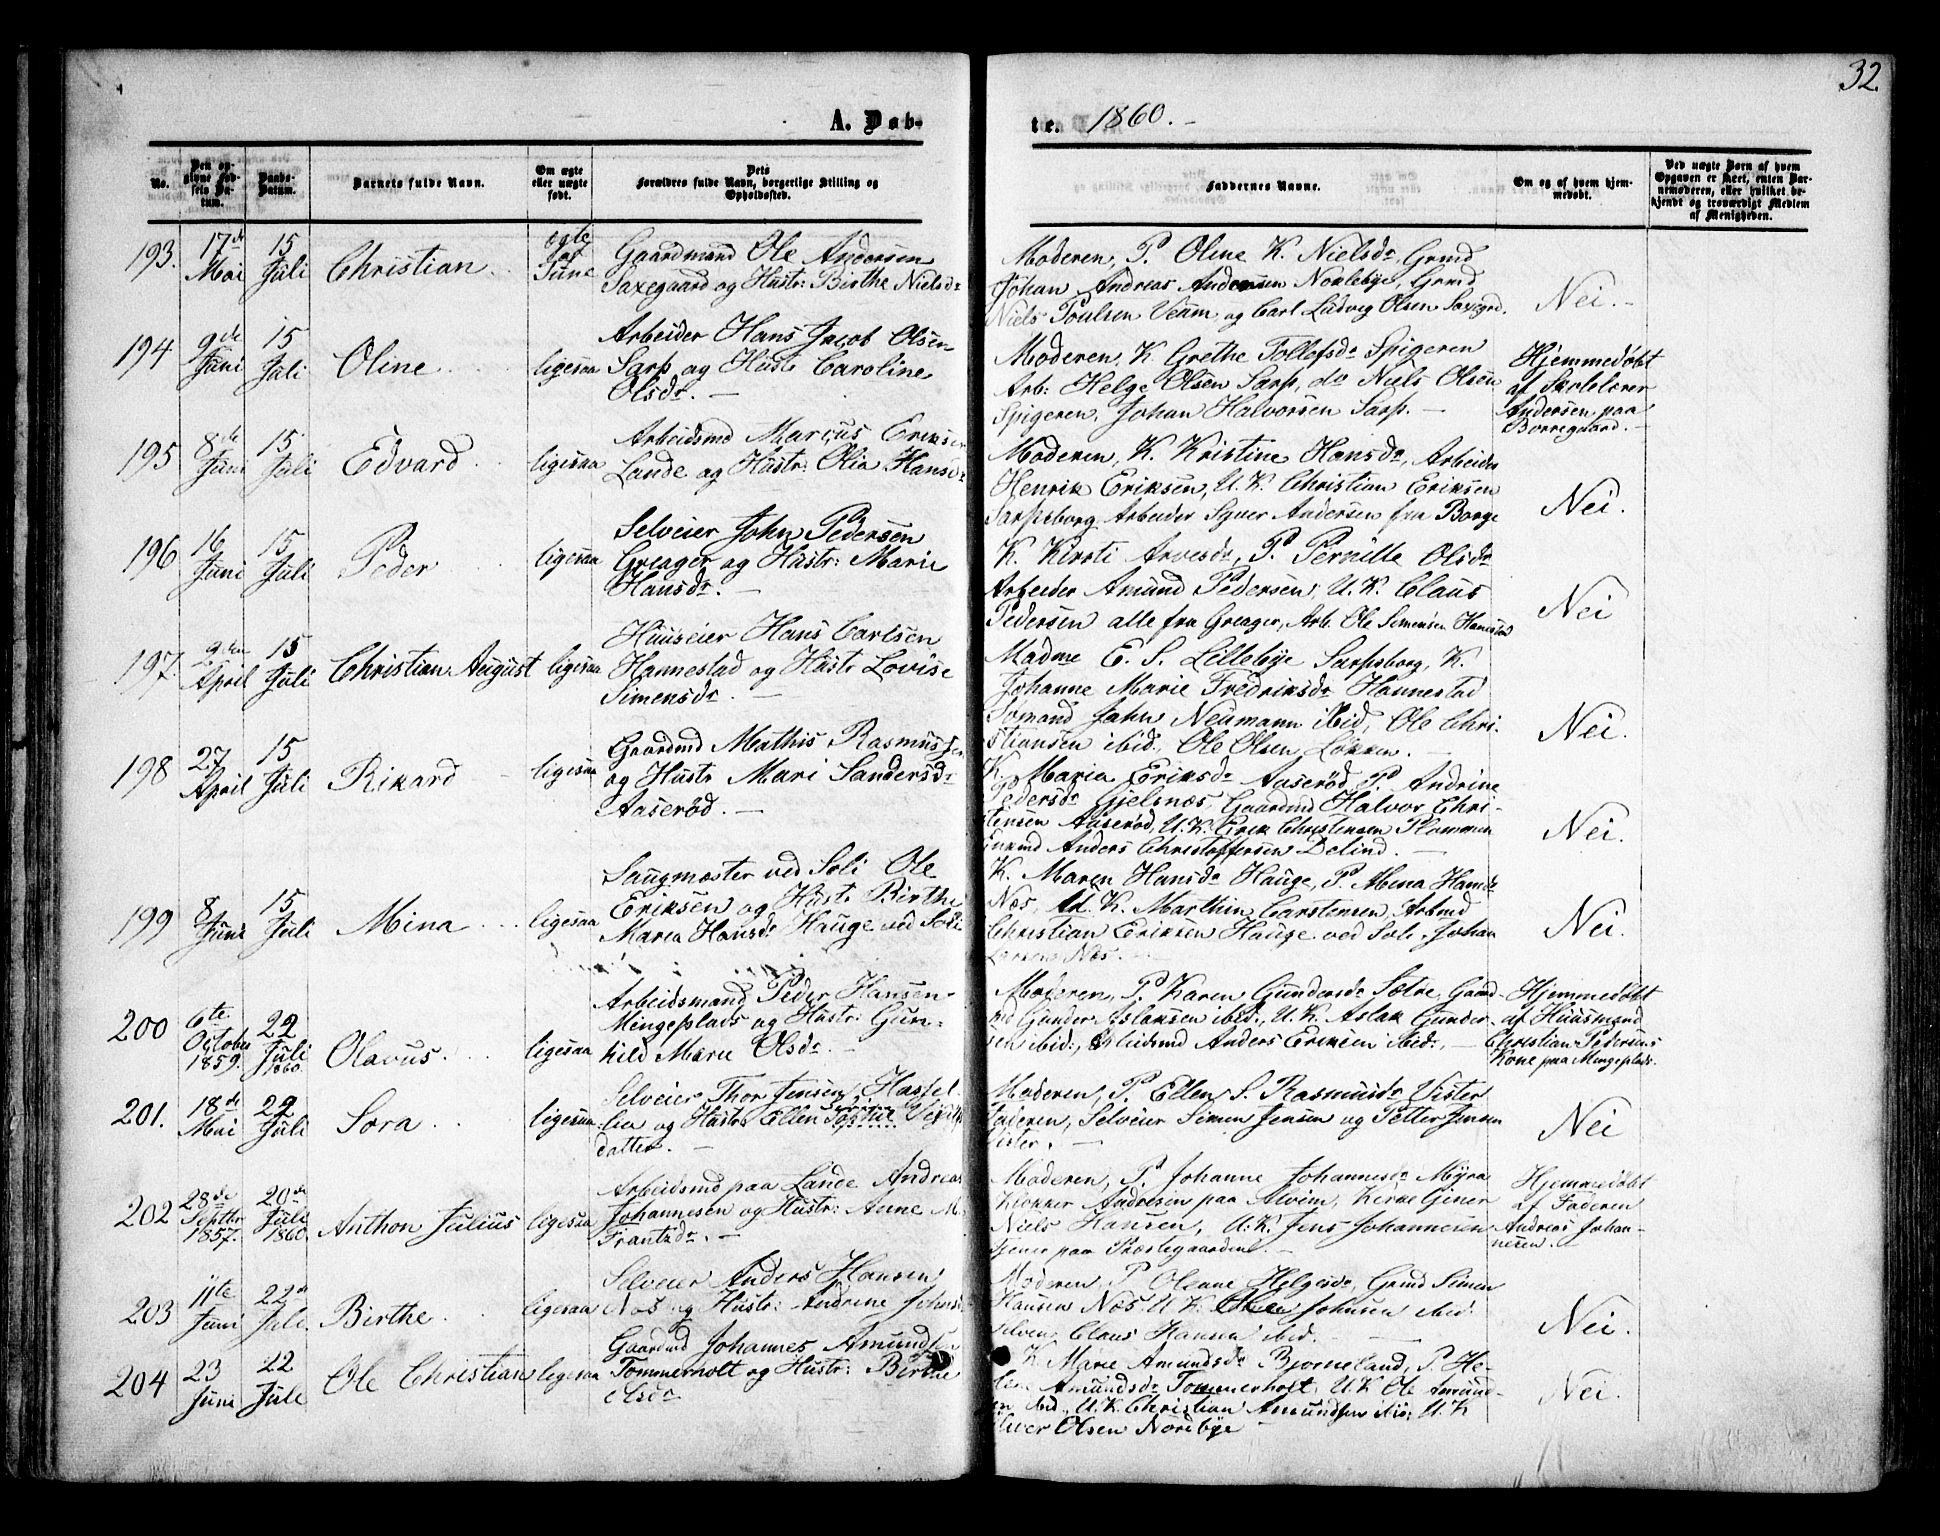 32.
A. Døb-
te. 1860. -
No.
Den opgivne Fødsels Datum.
Daabs-Datum.
Barnets fulde Navn.
Om ægte eller uægte født.
Dets Forældres fulde Navn, borgerlige Stilling og Opholdssted.
Faddernes Navne.
Om og af hvem hjemmedøbt.
Ved uægte Børn af hvem Opgaven er skeet, enten Barnemoderen, eller hvilket bekjendt og troværdigt Medlem af Menigheden.
193. 17de Mai 15 Juli Christian
Gaardmand Ole Andersen
Saxegaard og Hustr: Birthe Nielsdr
Moderen, P. Oline K. Nielsdr, Grmd
Johan Andreas Andersen Navlebye, Grmd
Niels Poulsen Venm, og Carl Ludvig Olsen Saxegrd.
Nei. -
194 9de Juni 15 Juli Oline ligesaa
Arbeider Hans Jacob Olsen
Sarp og Hustr Caroline
Olsdr. -
Moderen, K. Grethe Tollefsdr Spigeren
Arb: Helge Olsen Sarp, do Niels Olsen
Spigeren, Johan Halvorsen Sarp. -
Hjemmedøbt
af Skolelærer
Andersen paa
Borregaard. -
195 8de Juni 15 Juli Edvard ligesaa
Arbeidsmd Marcus Eriksen
Lande og Hustr: Olia Hansdr
Moderen, K. Kristine Hansdr, Arbeider
Henrik Eriksen, U.K. Christian Eriksen
Sarpsborg Arbeider Syver Andersen fra Borge
Nei.
196 16 Juni 15 Juli Peder ligesaa
Selveier John Pedersen
Greager og Hustr: Marie
Hansdr. -
K. Kirsti Arvesdr, P. Pernille Olsdr
Arbeider Amund Pedersen, U.K. Claus
Pedersen alle fra Greager, Arb. Ole Simensen Hannestad
Nei
197. April 15 Juli Christian August ligesaa
Huuseier Hans Carlsen
Hannestad og Hustr Lovise
Simensdr. -
Madme E. S. Lillebye Sarpsborg, K.
Johanne Marie Fredriksdr Hannestad
Sømand Jahn Neumann ibid, Ole Chri-
stiansen ibid., Ole Olsen Løkken. -
Nei.
198 27 April 15 Juli Rikard ligesaa
Gaardmd Mathis Rasmussen
og Hustr Mari Sandersdr
Aaserød. -
K. Maria Eriksdr Aaserød, P. Andrine
Pedersdr Gjelsnæs, Gaardmd Halvor Chri-
stensen Aaserød, U.K. Erik Christensen Plommen
Anders Christoffersen Delind. -
Nei.
199 8 Juni 15 Juli Mina ligesaa
Saugmester ved Soli Ole
Eriksen og Hustr Birthe
Maria Hansdr Hauge ved Soli
K. Maren Hansdr Hauge, P. Mina Hansdr
Næs, U.K. Marthin Carstensen, Arbmd
Christian Eriksen Hauge ved Soli, Johan
Larsen Næs. -
Nei.
200 6te October 1859. 22 Juli 1860. Olavus ligesaa
Arbeidsmand Peder Hansen
Mingeplads og Hustr: Gun-
hild Marie Olsdr -
Moderen, P. Karen Gundersdr Sætre, Gaard-
md Gunder Aslaksen ibid., U.K. Aslak Gunder-
sen ibid., Arbeidsmd Anders Eriksen ibid:, -
Hjemmedøbt
af Huusmand
Christian Pedersens
Kone paa Mingeplads.
201. 18de Mai 22 Juli Sara ligesaa
Selveier Thor Jensen, Hassel-
lia og Hustr: Ellen Sophie
datter. -
Moderen, P. Ellen S. Rasmusdr Vister
Faderen, Selveier Simen Jensen og Petter Jensen
Vister. -
Nei
202 28de Septbr 1857. 20de Juli 1860. Anthon Julius ligesaa
Arbeidsmd paa Lande Andreas
Johannesen og Hustr: Anne M.
Frantzdr. -
Moderen, P. Johanne Johannesdr Myra
Klokker Andresen paa Alvim, Kirke Giner
Niels Hansen, U.K. Jens Johannesen
Tjener paa Præstegaarden. -
Hjemmedøbt
af Faderen
Andreas Johan-
nesen. -
203 11te Juni 22de Juli Birthe ligesaa
Selveier Anders Hansen
Næs og Hustr: Andrine Johnsdr
Moderen, P. Oleane Helgesdr, Grmd Simen
Hansen Næs, U.K. Johnsen ibid.
Selveier Claus Hansen ibid.
Nei.
204 23 Juni 22 Juli Ole Christian ligesaa
Gaardmd Johannes Amundsen
Tommerholt og Hustr: Birthe
Olsdr
K. Marie Amundsdr Bjørneland, P. He-
lene Amundsdr Tommerholt, U.K. Ole Amund-
sen ibid., U.K. Christian Amundsen ibid: U.K
Iver Olsen Nordbye
Nei.